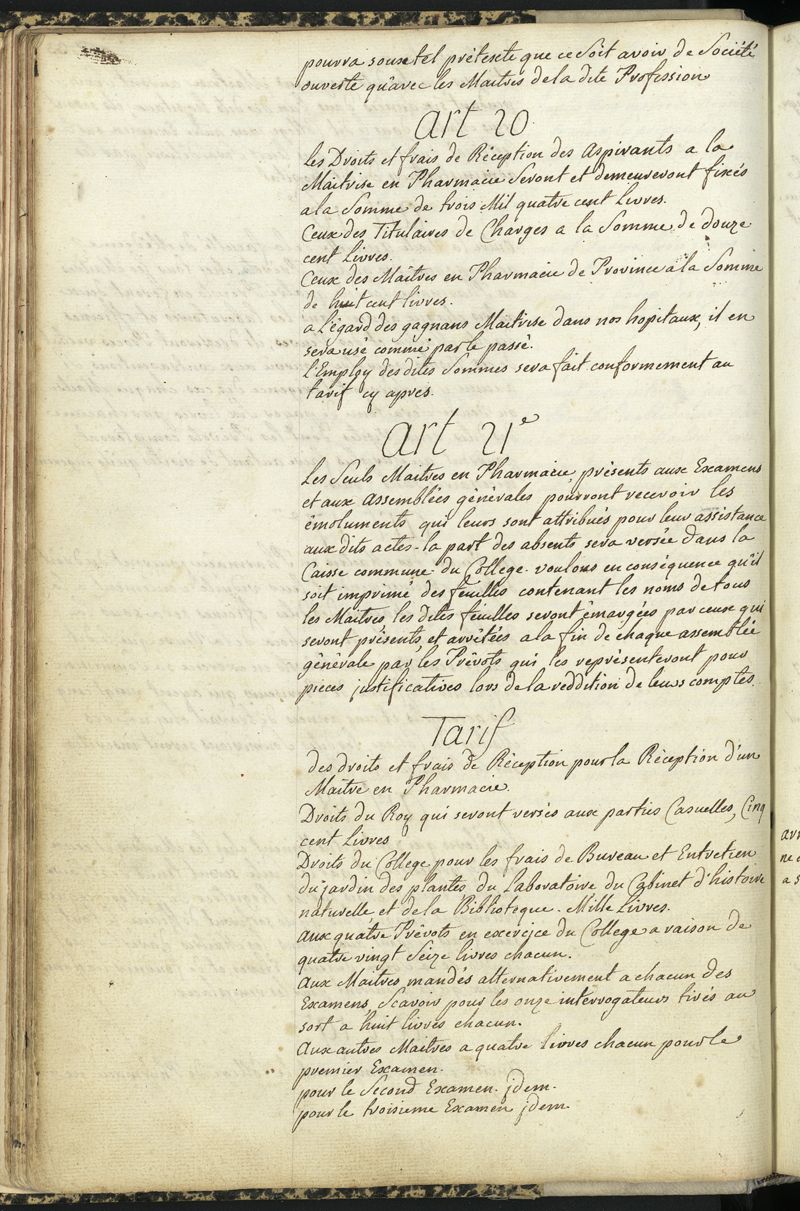 pourra sous tel prétexte que ce soit avoir de Société
ouverte qu'avec les Maitres de la dite Profession
art 20
Les Droits et frais de Réception des Aspirants a la
Maitrise en Pharmacie Seront et demeureront fixés
a la Somme de trois Mil quatre cent Livres.
Ceux des Titulaires de Charges a la Somme de douze
cent Livres.
Ceux des Maitres en Pharmacie de Province a la Somme
de huit cent livres.
a L'égard des gagnans Maitrise dans nos hopitaux, il en
sera usé comme par le passé.
l'Employ des dites Sommes sera fait conformement au
tarif cy apres.
art 21e
Les Seuls Maitres en Pharmacie, présents aux Examens
et aux assemblées générales pourront recevoir les
émoluments qui leurs sont attribués pour leur assistance
aux dits actes - la part des absents sera versée dans la
Caisse commune du College. voulons en conséquence qu'il
soit imprimé des feuilles contenant les noms de tous
les Maitres, les dites feuilles seront émargées par ceux qui
seront présents et arrêtées a la fin de chaque assemblée
générale par les Prévots qui les représenteront pour
pieces justificatives lors de la reddition de leurs comptes.
Tarif
des droits et frais de Réception pour la Réception d'un
Maitre en Pharmacie.
Droits du Roy qui seront versés aux parties Casuelles, Cinq
cent Livres
Droits du College pour les frais de Bureau et Entretien
du jardin des plantes du Laboratoire du Cabinet d'histoire
naturelle et de la Biblioteque. Mille Livres.
aux quatre Prévots en exercice du College a raison de
quatre vingt Seize livres chacun.
aux Maitres mandés alternativement a chacun des
Examens Scavoir pour les onze interrogateurs tirés au
sort a huit livres chacun.
Aux autres Maitres a quatre livres chacun pour le
premier Examen.
pour le Second Examen. jdem.
pour le troisieme Examen jdem.